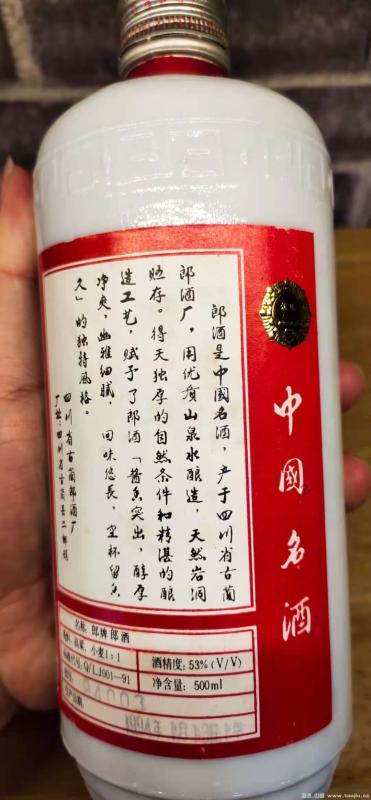 郎酒是中國名酒，产于四川省古蔺
郎酒厂，用优质山泉水酿造，天然岩洞
贮存。得天独厚的自然条件和精湛的酿
造工艺，赋予了郎酒「酱香突出，醇厚
净爽，幽雅细腻，回味悠長，空杯留香
久」的独特风格。
四川省古蔺郎酒厂
厂址：四川省古蔺县二郎镇
中國名酒
名称：郎牌郎酒
高粱，小麦1：1
Q/LJ001—91
酒精度：53%（V/V）
净含量：500ml
94003
1994年